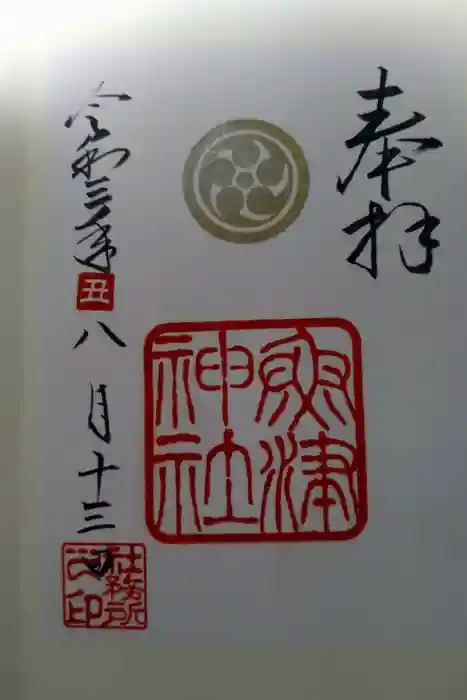 奉拝
魚津
神社
令和三年
丑
八月十三日
社務所
之印